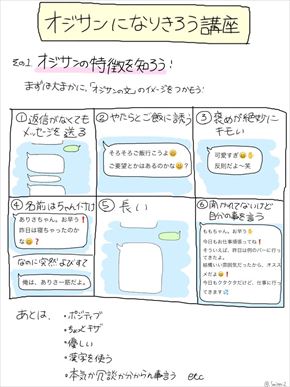 オジサンになりきろう講座
その1 オジサンの特徴を知ろう!
まずは大まかに、「オジサンの文」のイメージをつかもう!
①返信がなくても
メッセージを送る
②やたらとご飯に誘う
そろそろご飯行こうよ😄
ご要望とかはあるのかな😄?
③褒めが絶妙に
キモい
可愛すぎ😄✋
反則だよ〜笑
④名前はちゃん付け
ありさちゃん。お早う❗
昨日は寝ちゃったのか
な😄?
なのに突然よびすて
俺は、ありさ一筋だよ。
⑤長い
⑥聞かれてないけど
自分の事を言う
ももちゃん。お早う✋
今日もお仕事頑張ってね❗
そういえば、昨日は何のバーに行っ
てきたよ。
結構いい雰囲気だったから、オスス
メだよ😄❗
今日もクタクタだけど、仕事に行っ
てきます💦
あとは、・ポジティブ
・ちょっとキザ
・優しい
・漢字を使う
・本気か冗談か分からん事言う etc